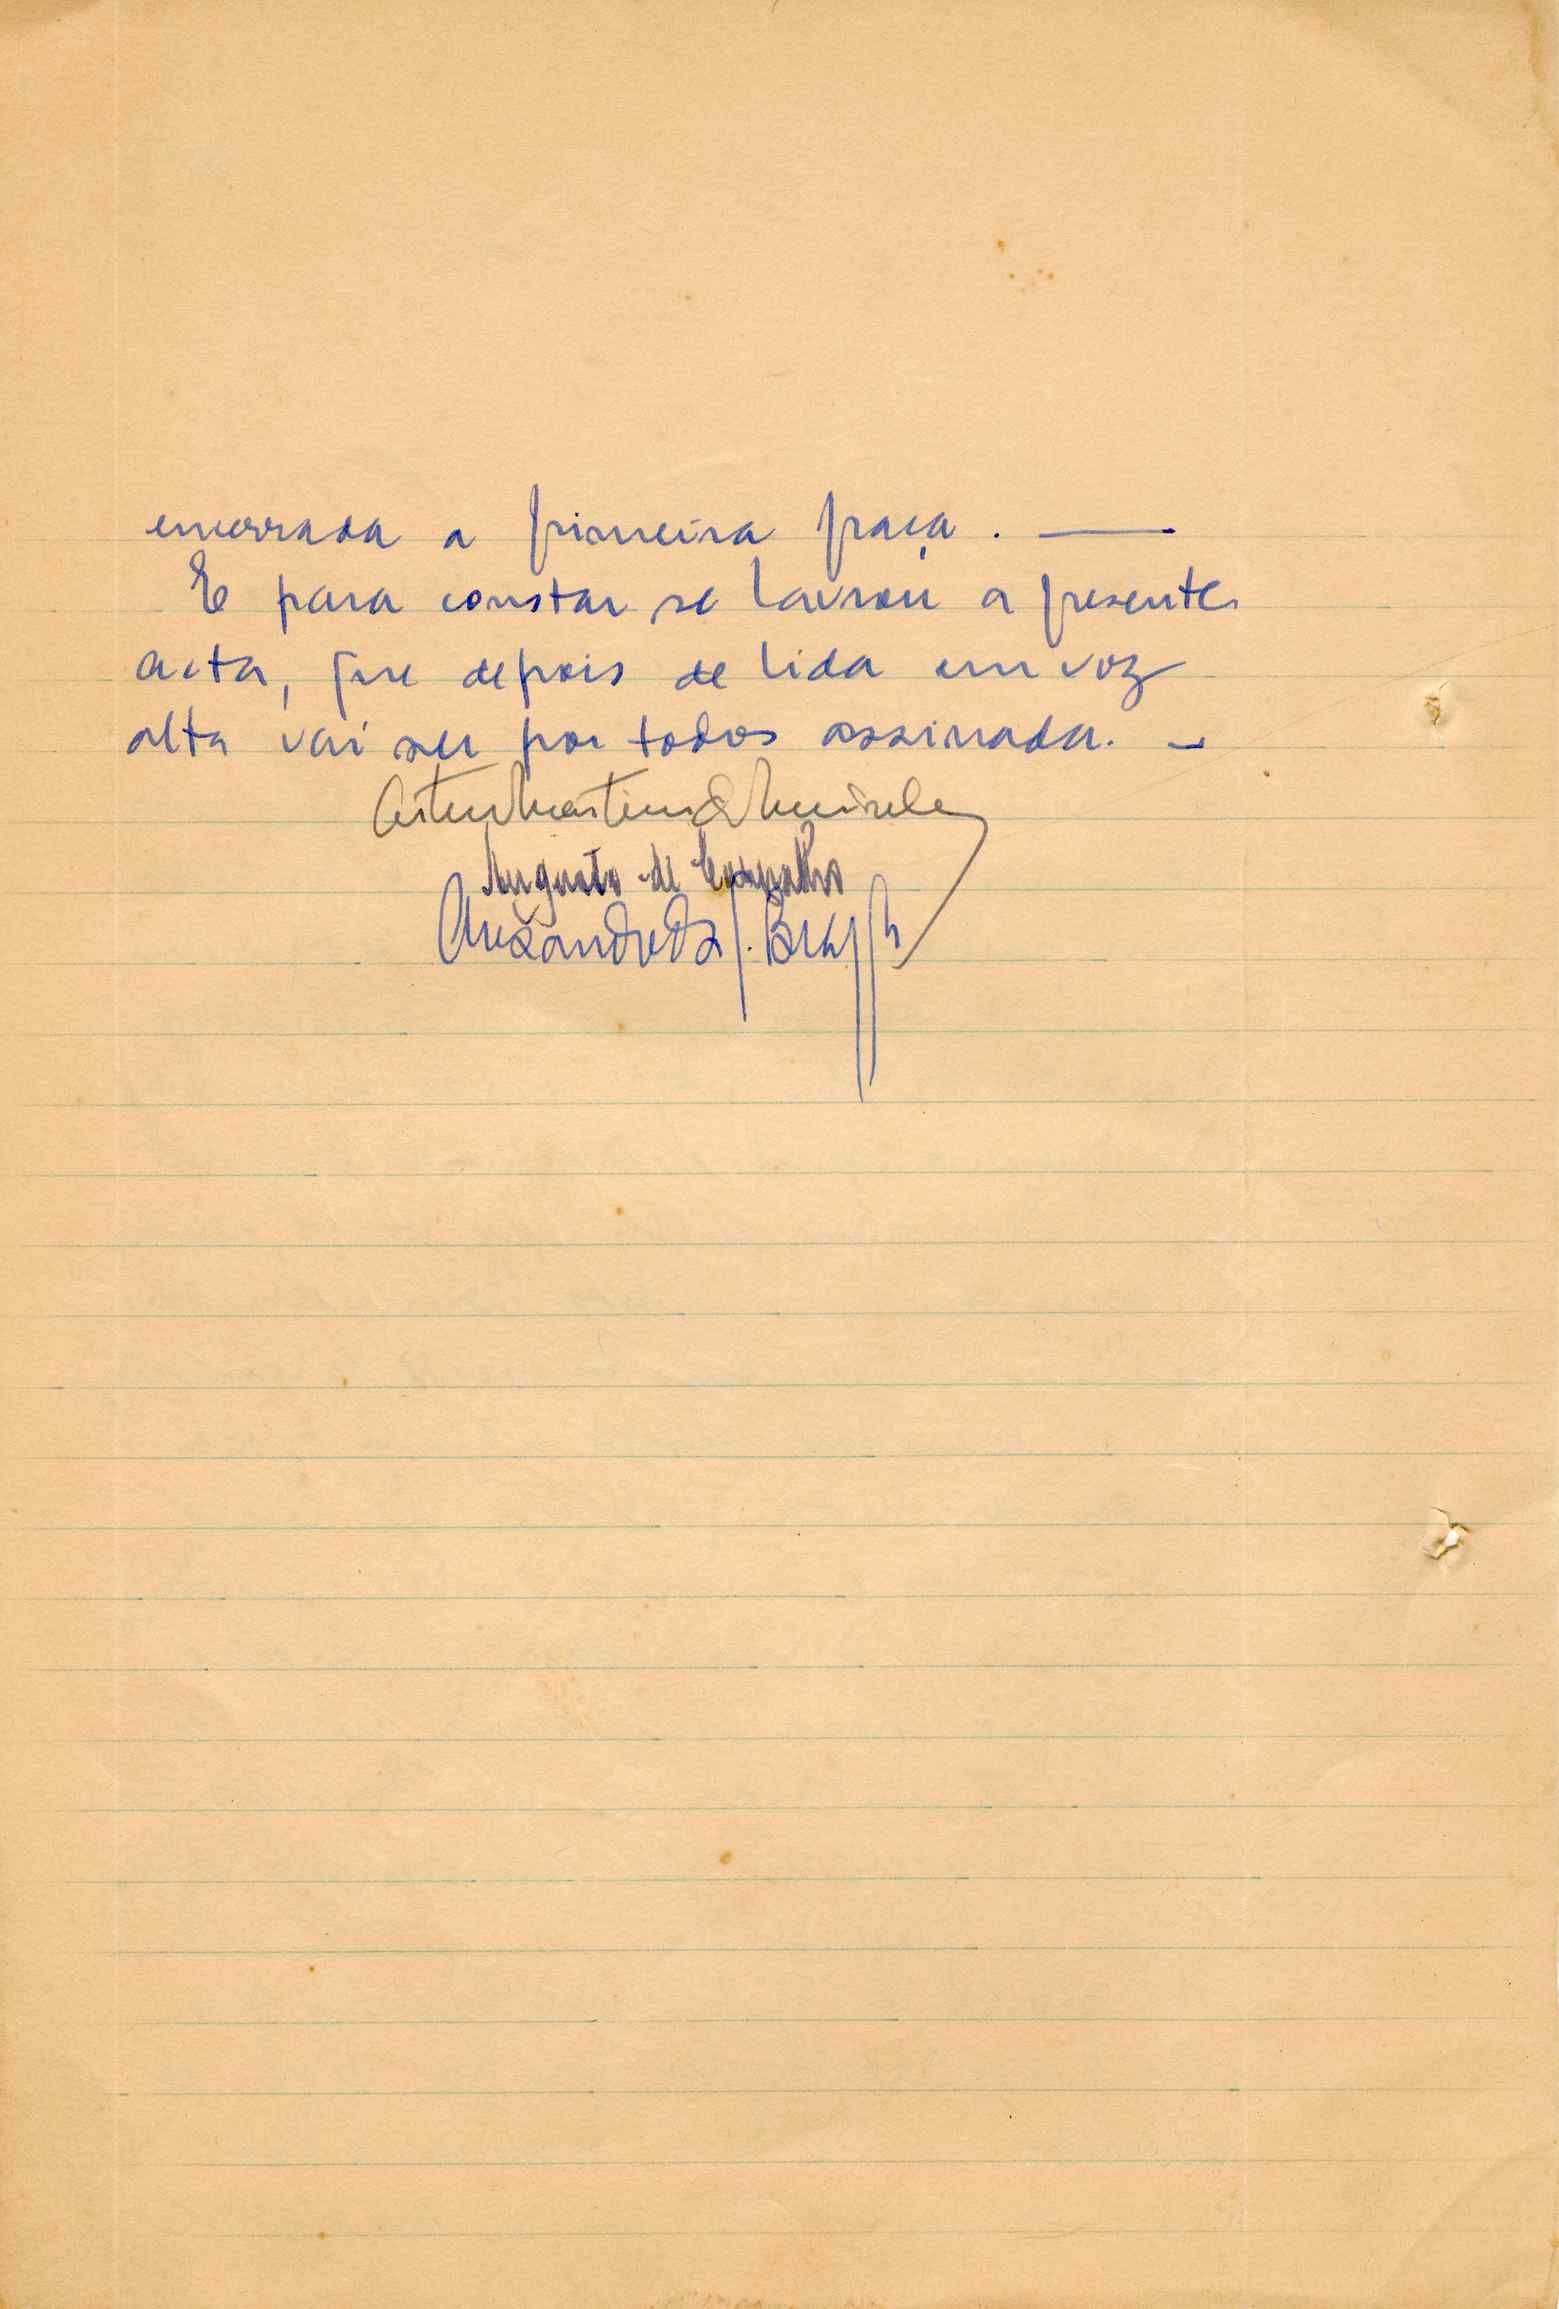 encerrada a primeira praça. —
E para constar se lavrou a presente
acta, que depois de lida em voz
alta vai ser por todos assinada. —
Augusto de Carvalho
Alexandre